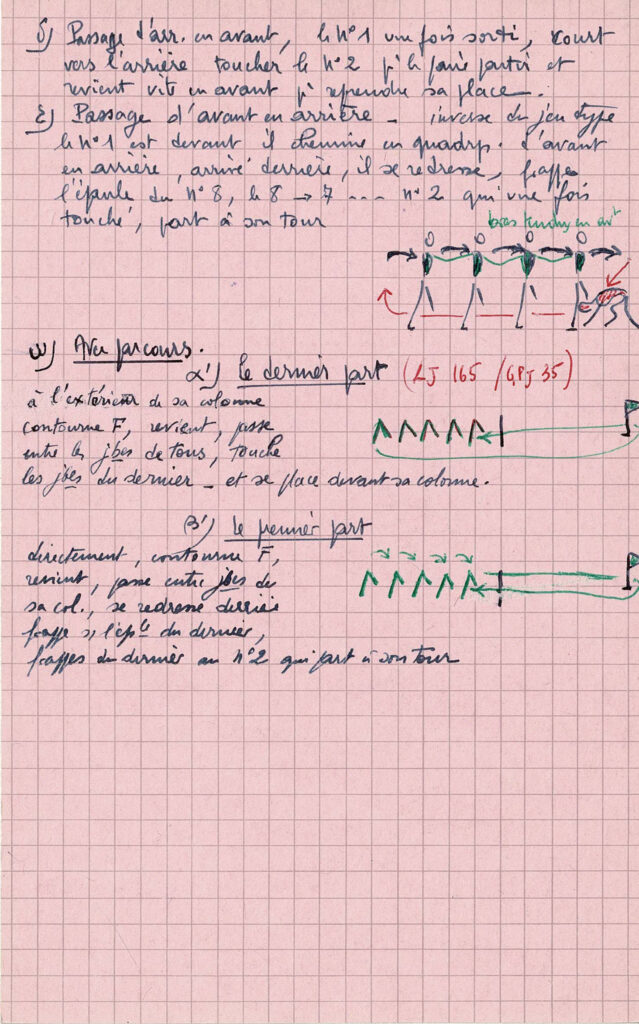 δ) Passage d'arr. en avant, le n°1 une fois sorti, court
vers l'arrière toucher le n°2 pr le faire partir et
revient vite en avant pr reprendre sa place.
ε) Passage d'avant en arrière - inverse du jeu type
le n°1 est devant il chemine en quadrp. d'avant
en arrière, arrivé derrière, il se redresse, frappe
l'épaule du n°8, le 8 → 7 --- n°2 qui une fois
touché, part à son tour
bras tendus en avt
ω) Avec parcours.
α') le dernier part (LJ 165 / GPJ 35)
à l'extérieur de sa colonne
contourne F, revient, passe
entre les jbes de tous, touche
les jbes du dernier - et se place devant sa colonne.
β') le premier part
directement, contourne F,
revient, passe entre jbes de
sa col., se redresse derrière
frappe s/ l'éple du dernier,
frappes du dernier au n°2 qui part à son tour